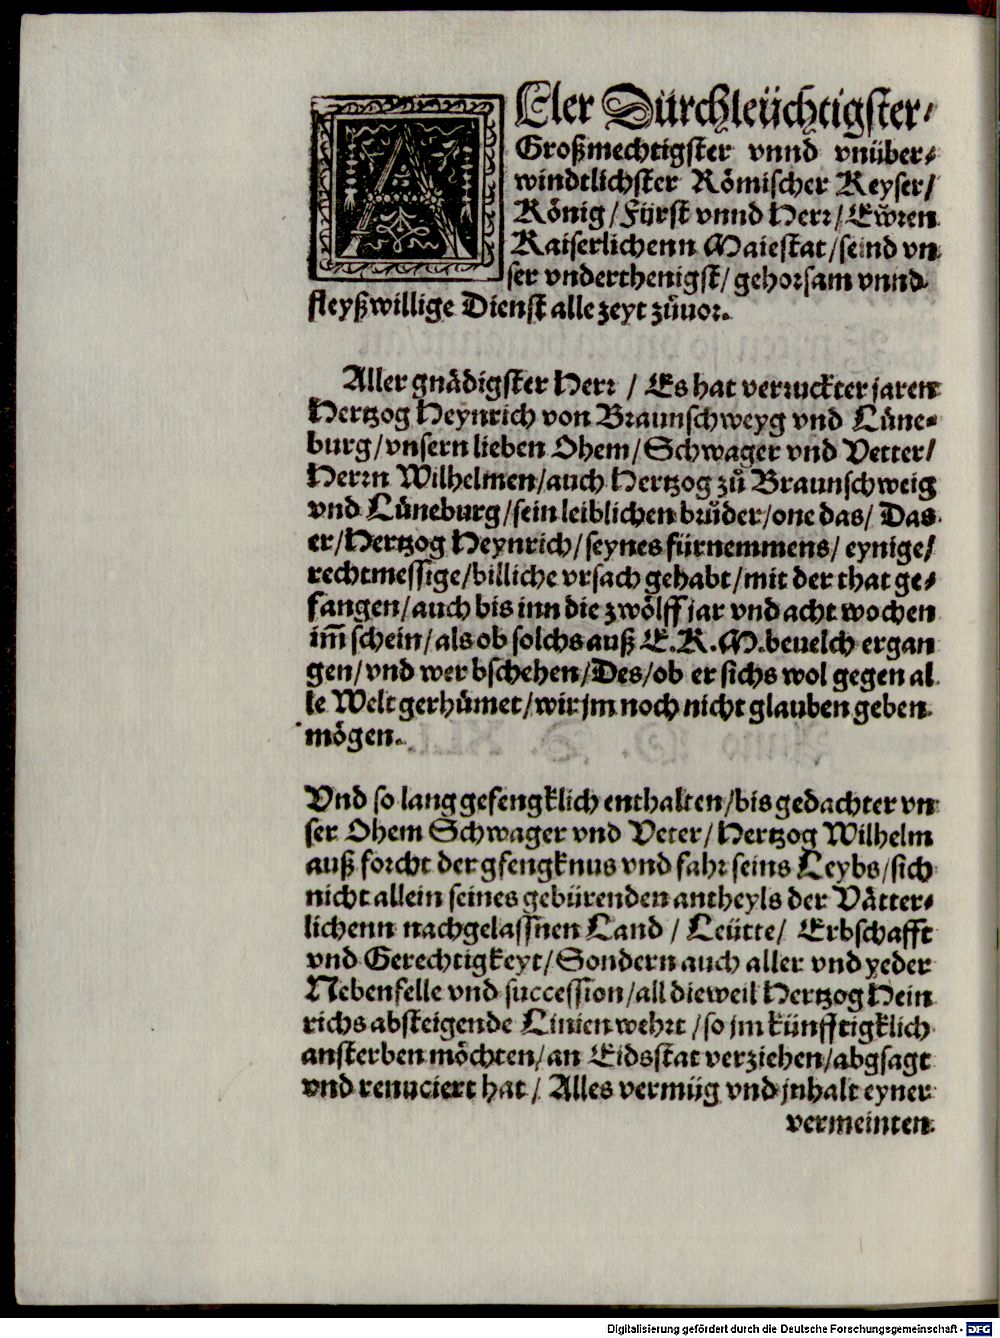 ALler Dürchleüchtigster/
Großmechtigster vnnd vnüber/
windtlichster Römischer Keyser/
König/Fürst vnnd Herr/Ewren
Kaiserlichenn Maiestat/seind vn
ser vnderthenigst/gehorsam vnnd
fleyßwillige Dienst alle zeyt zůuor.
Aller gnädigster Herr / Es hat verruckter jaren
Hertzog Heynrich von Braunschweyg vnd Lüne⸗
burg/vnsern lieben Ohem/Schwager vnd Vetter/
Herrn Wilhelmen/auch Hertzog zů Braunschweig
vnd Lüneburg/sein leiblichen brůder/one das/ Das
er/Hertzog Heynrich/seynes fürnemmens/ eynige/
rechtmessige/billiche vrsach gehabt/mit der that ge/
fangen/auch bis inn die zwölff jar vnd acht wochen
im̃ schein/als ob solchs auß E.K.M.beuelch ergan
gen/vnd wer bschehen/Des/ob er sichs wol gegen al
le Welt gerhümet/wir jm noch nicht glauben geben
mögen.
Vnd so lang gefengklich enthalten/bis gedachter vn
ser Ohem Schwager vnd Veter/Hertzog Wilhelm
auß forcht der gfengknus vnd fahr seins Leybs/sich
nicht allein seines gebürenden antheyls der Vätter⸗
lichenn nachgelassnen Land / Leütte/ Erbschafft
vnd Gerechtigkeyt/Sondern auch aller vnd yeder
Nebenfelle vnd succession/all dieweil Hertzog Hein
richs absteigende Linien wehrt /so jm künfftigklich
ansterben möchten/an Eidsstat verziehen/abgsagt
vnd renuciert hat/ Alles vermüg vnd jnhalt eyner
vermeinten
Digitalisierung gefördert durch die Deutsche Forschungsgemeinschaft - DFG